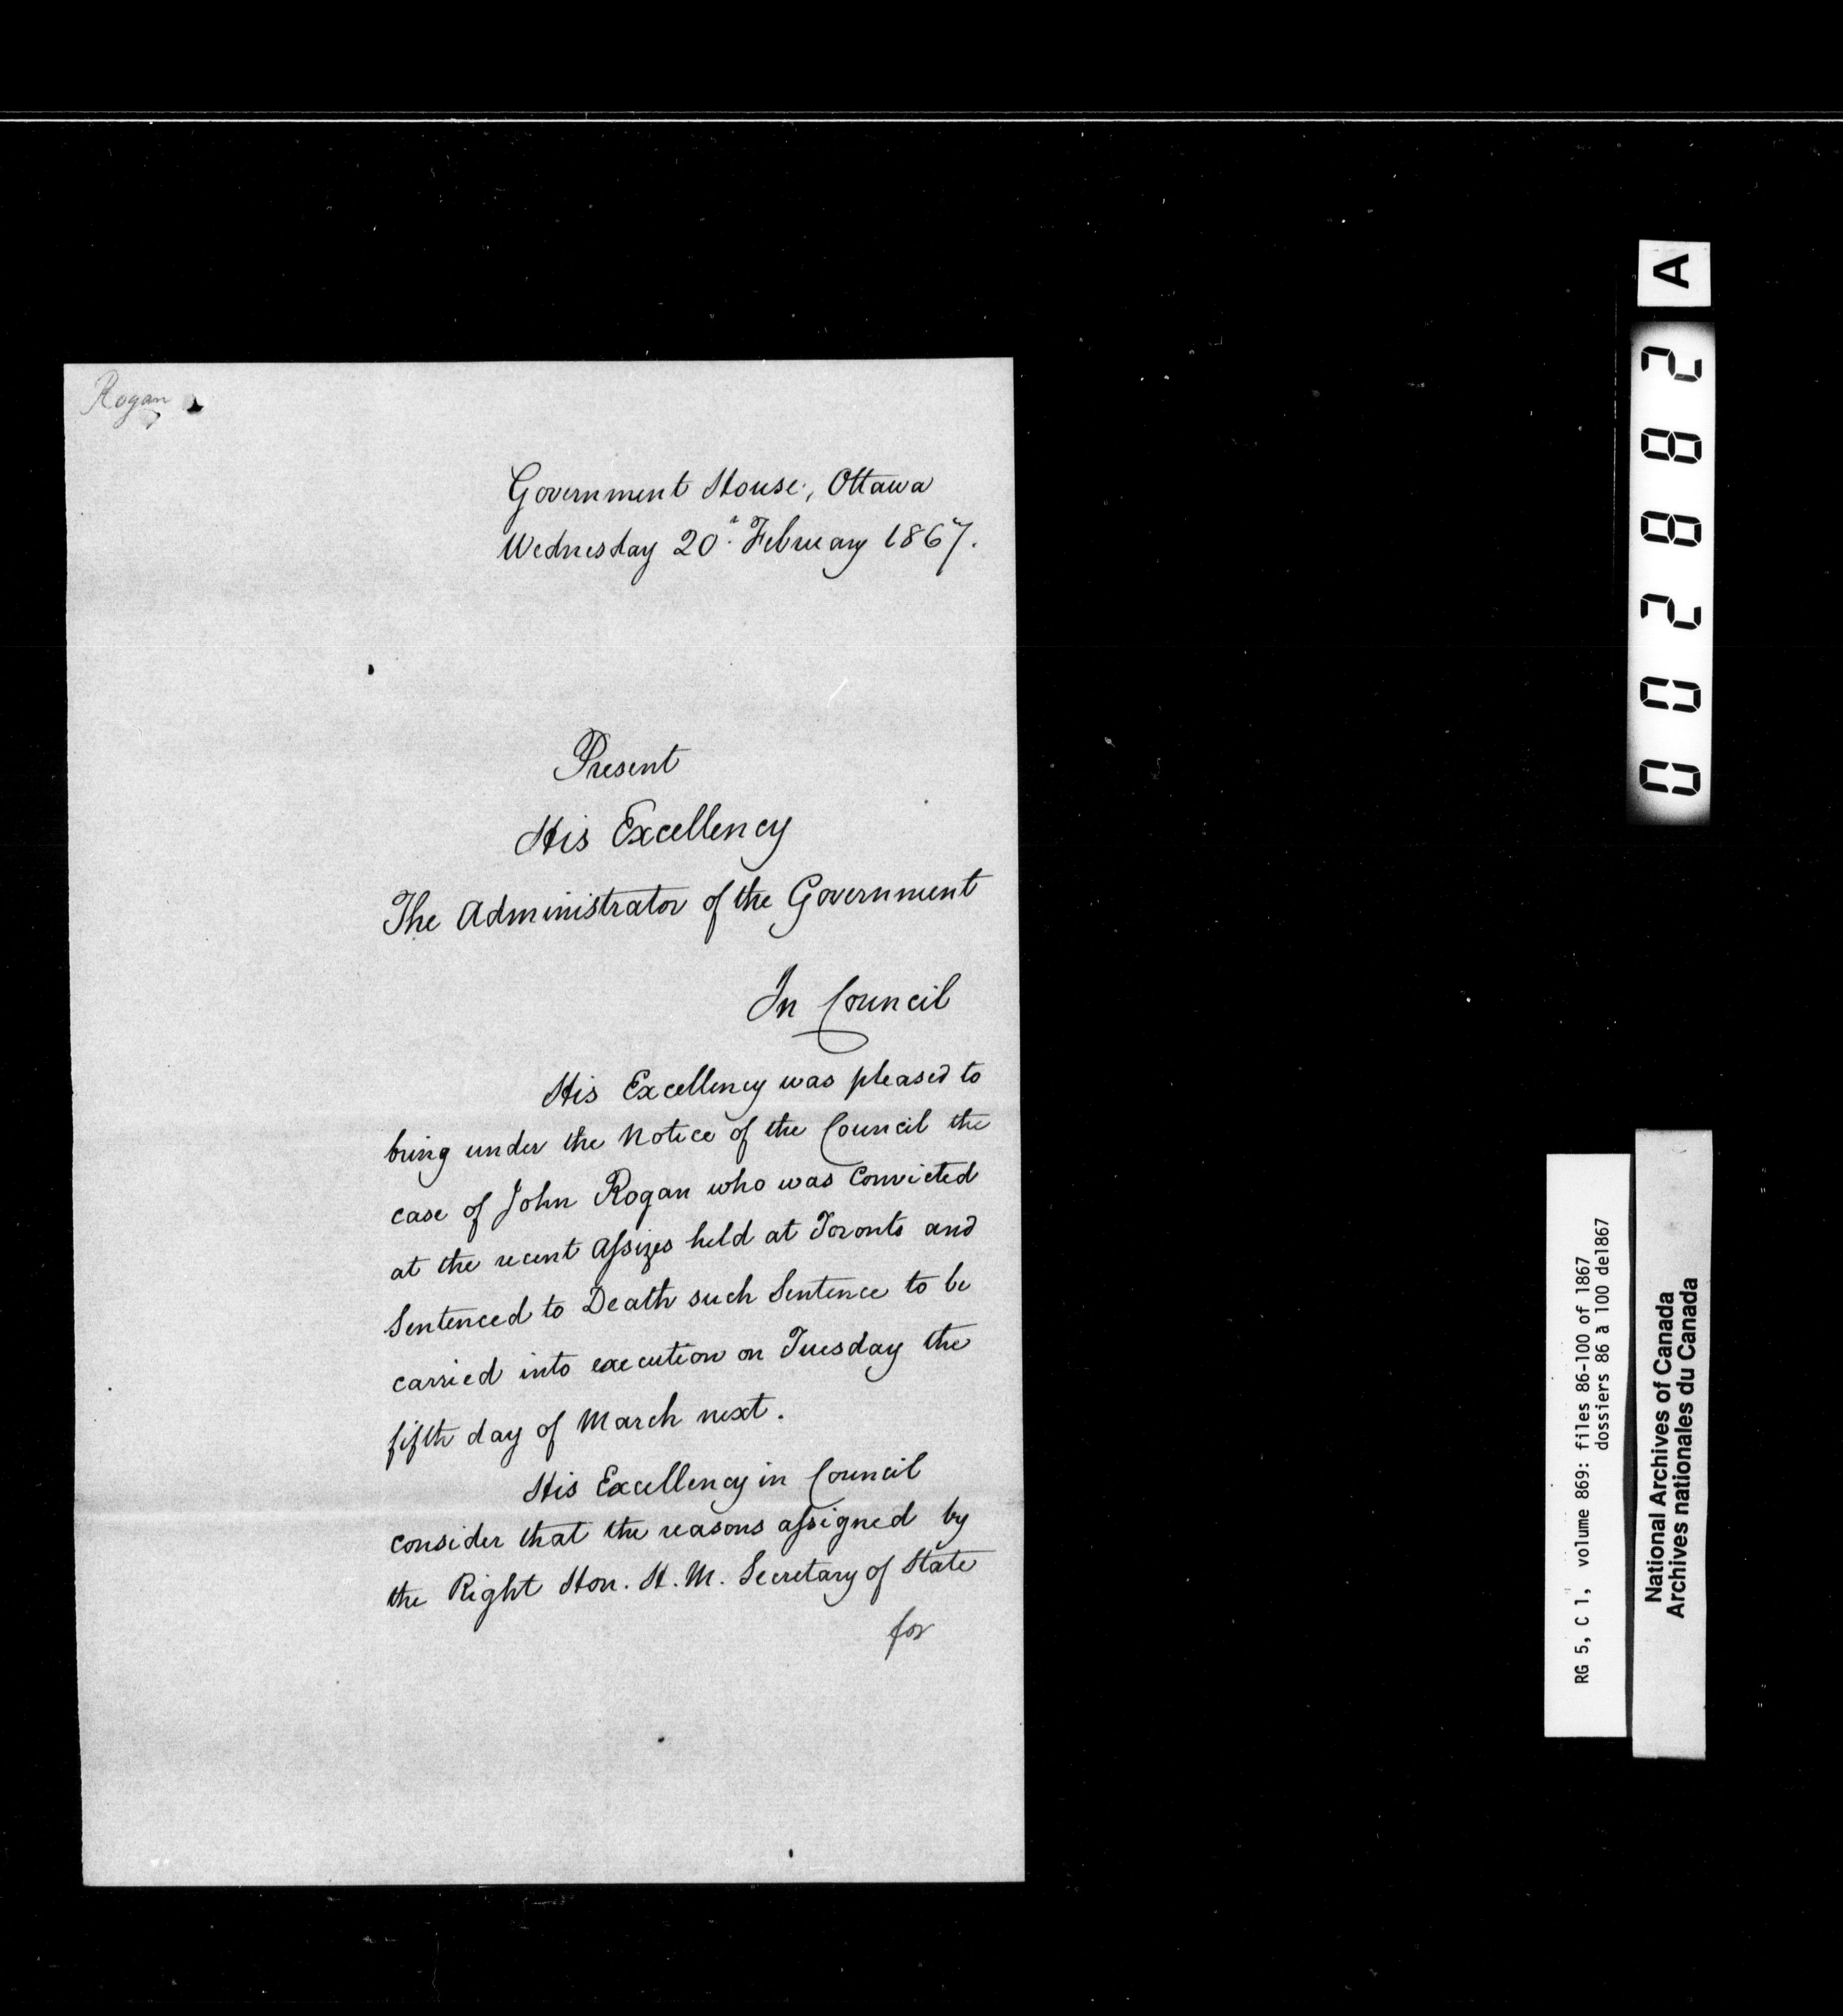 Rogan
Government House, Ottawa
Wednesday 20th February 1867.
Present
His Excellency
The Administrator of the Government
In Council
His Excellency was pleased to
bring under the Notice of the Council the
case of John Rogan who was Convicted
at the recent Assizes held at Toronto and
Sentenced to Death such Sentence to be
carried into execution on Tuesday the
fifth day of March next.
His Excellency in Council
consider that the reasons assigned by
the Right Hon. H. M. Secretary of State
for
002882 A
RG 5, C 1, volume 869: files 86-100 of 1867
dossiers 86 à 100 de1867
National Archives of Canada
Archives nationales du Canada